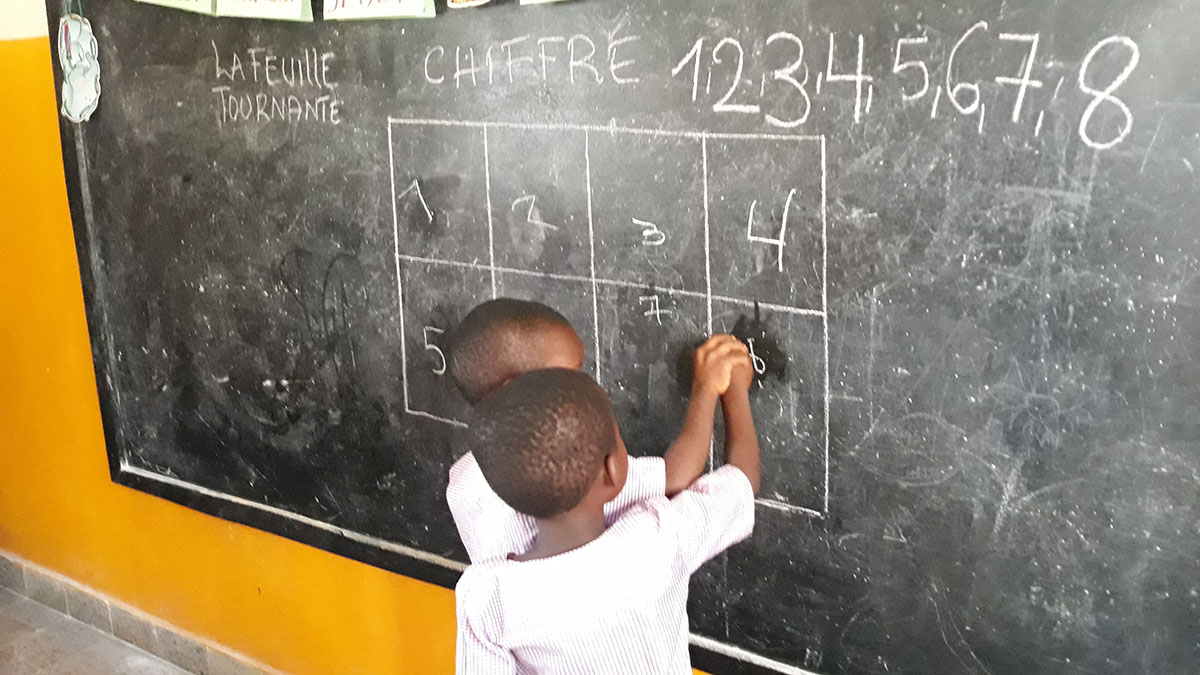 LA FEUILLE
TOURNANTE
CHIFFRÉ 1,2,3,4,5,6,7,8
1 2 3 4
5 7 8